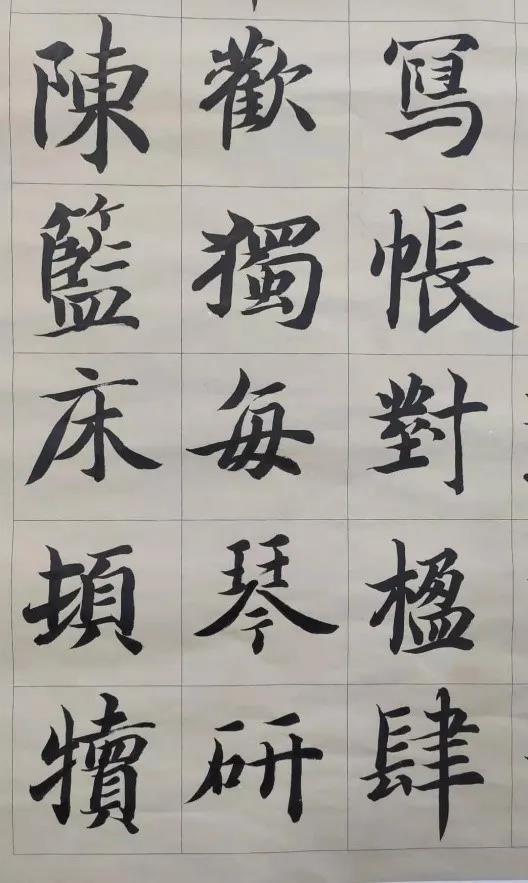 寫帳對楹肆
歡獨每琴研
陳籃床頓犢